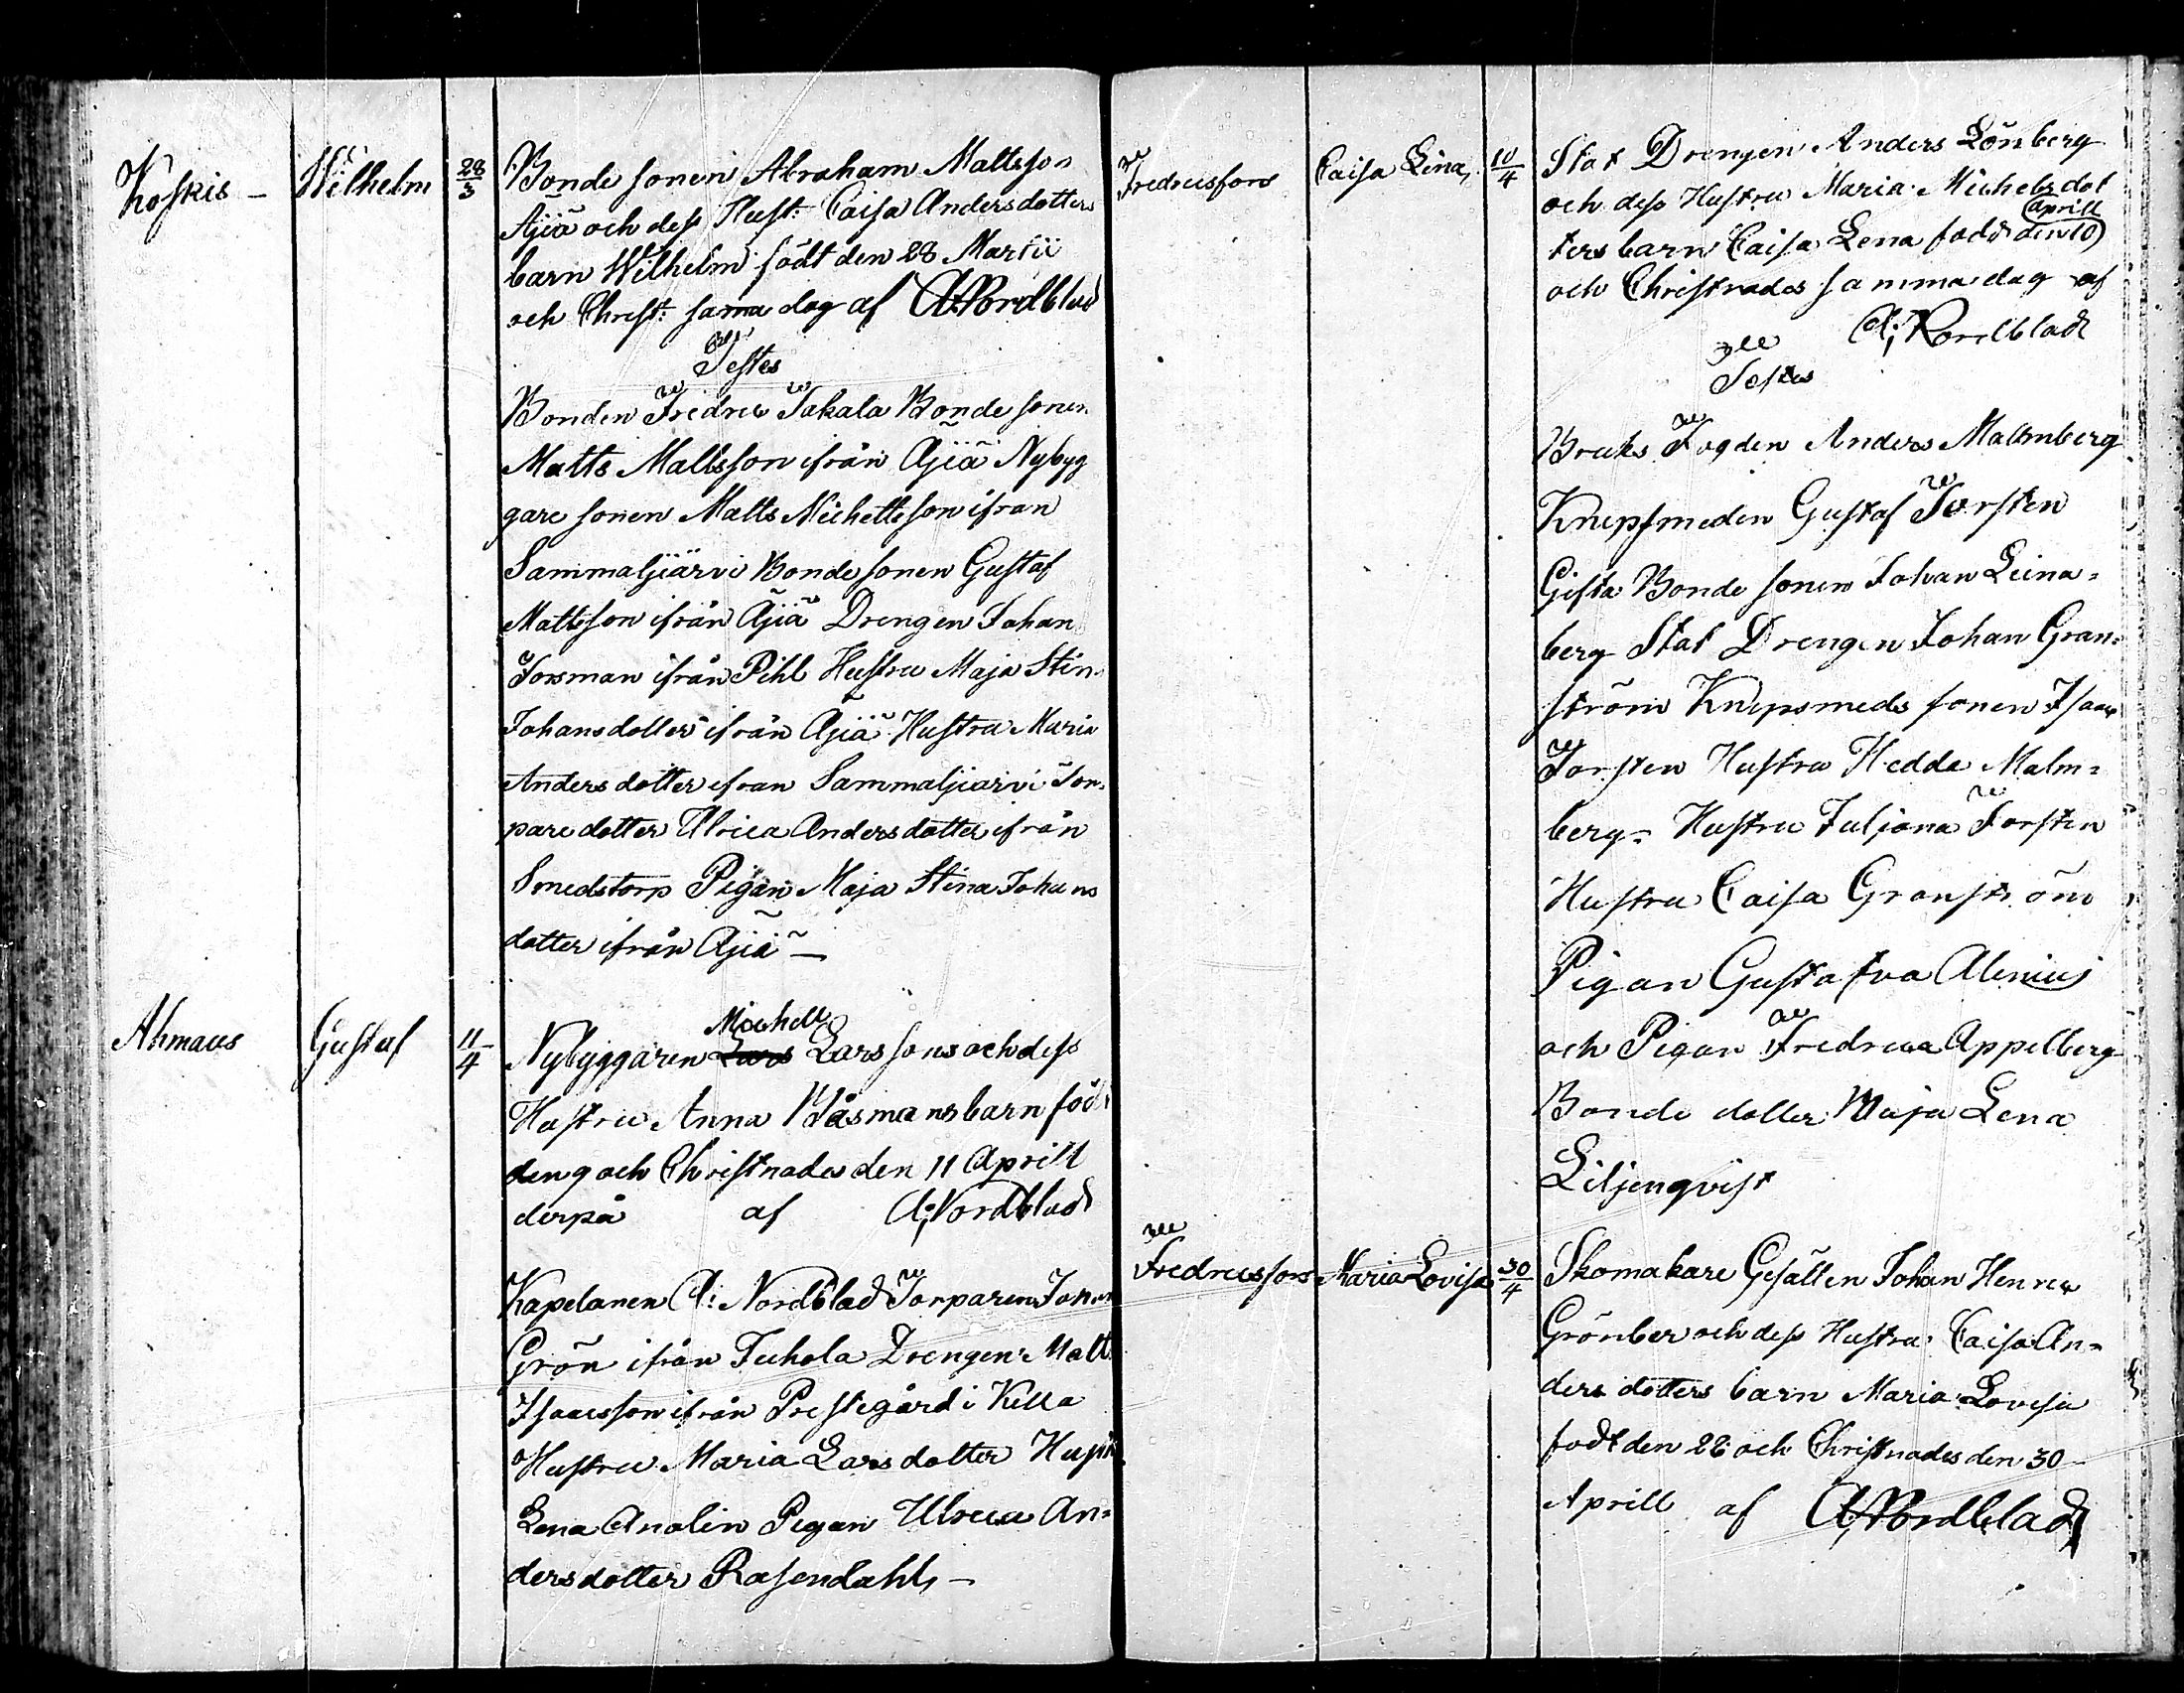 Koskis – Wilhelm 28/3 Bonde sonen Abraham Mattsson
Äjiä och dess Hust: Caisa Andersdotters
barn Wilhelm födt den 28 Martii
och Christ: sama dag af A:Nordblad
Testes
Bonden Fredric Takala Bonde sonen
Matts Mattsson ifrån Äjiä Nybyg
gare sonen Matts Michellsson ifran
Sammaljiärvi Bonde sonen Gustaf
Mattsson ifrån Äjiä Drengen Johan
Forsman ifrån Pihl Hustru Maja Stin
Johansdotter ifrån Äjiä Hustru Maria
Anders dotter ifran Sammaljiarvi Tor-
pare dotter Ulrica Andersdotter ifrån
Smedstorp Pigan Maja Stina Johans
dotter ifrån Äjiä –
Ahmaus Gustaf 11/4 Nybyggaren Lars Michell Larssons och dess
Hustru Anna Wåsmans barn född
den 9 och Christnades den 11 Aprill
derpå af A:Nordblad
Kapelanen A: Nordblad Torparen Johan
Grön ifrån Tuhola Drengen Matt
Isacsson ifrån Prestegård i Killa
Hustru Maria Larsdotter
Lena Analin Pigan Ulrica An-
dersdotter Rosendahl –
Fredricsfors Caisa Lena, 10/4 Stat Drengen Anders Lönberg
och dess Hustru Maria Michelsdot
ters barn Caisa Lena född den 10 Aprill
och Christnades samma dag af
A: Nordblad
Testes
Bruks Fogden Anders Malmberg
Knipsmeden Gustaf Torsten
Gifta Bonde sonen Johan Leina-
berg Stat Drengen Johan Gran-
ström Knipsmeds sonen Isaac
Torsten Hustru Hedda Malm-
berg- Hustru Juljana Torsten
Hustru Caisa Granström
Pigan Gustafva Alenius
och Pigan Fredrica Appelberg
Bonde dotter Maja Lena
Liljenqvist
Fredricsfors Maria Lovisa 30/4 Skomakare Gesällen Johan Henric
Grönber och dess Hustru Caisa An-
ders dotters barn Maria Lovisa
fodt den 28 och Christnades den 30
Aprill af A:Nordblad